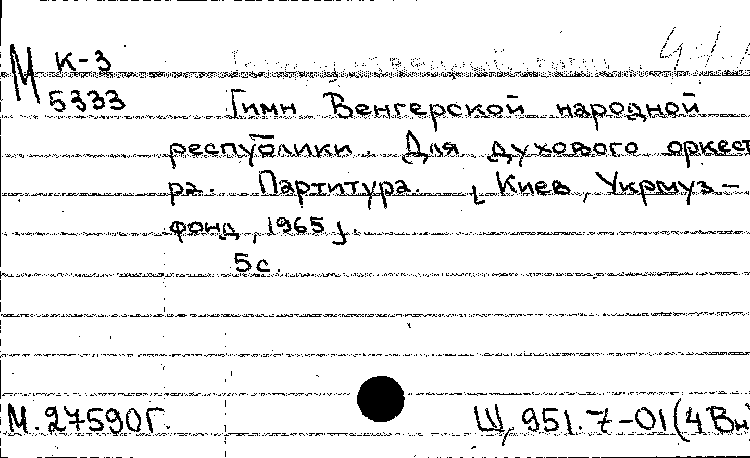 М К-3
5333
Гимн Венгерской народной
республики. Для духового оркест
ра. Партитура. [Киев, Укрмуз-
фонд, 1965].
5с.
М.27590Г. Щ,951.7-01(4Вн)